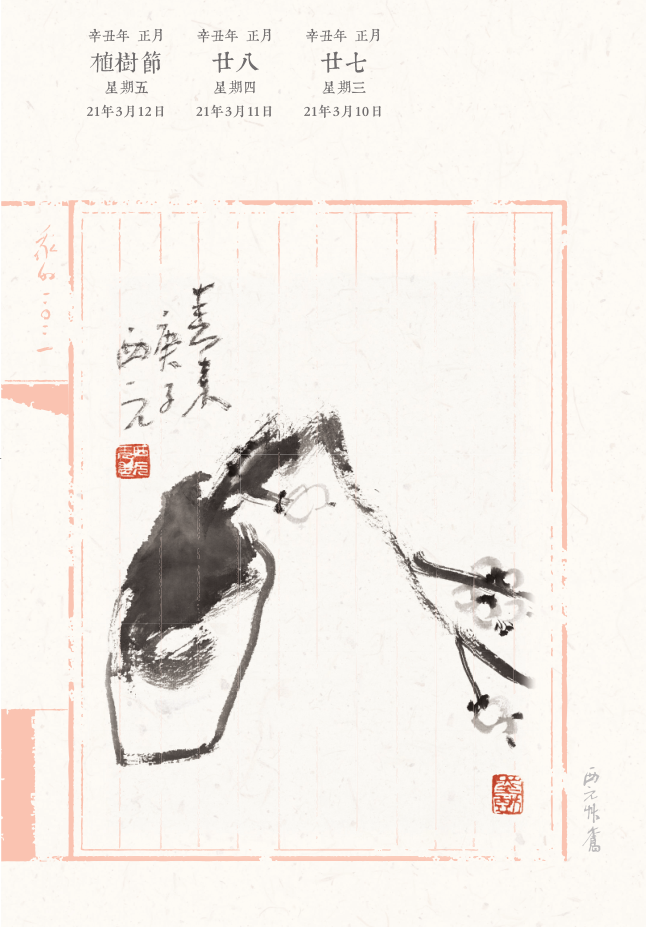 辛丑年 正月
廿七
星期三
21年3月10日
辛丑年 正月
廿八
星期四
21年3月11日
辛丑年 正月
植樹節
星期五
21年3月12日
春來
庚子
西元